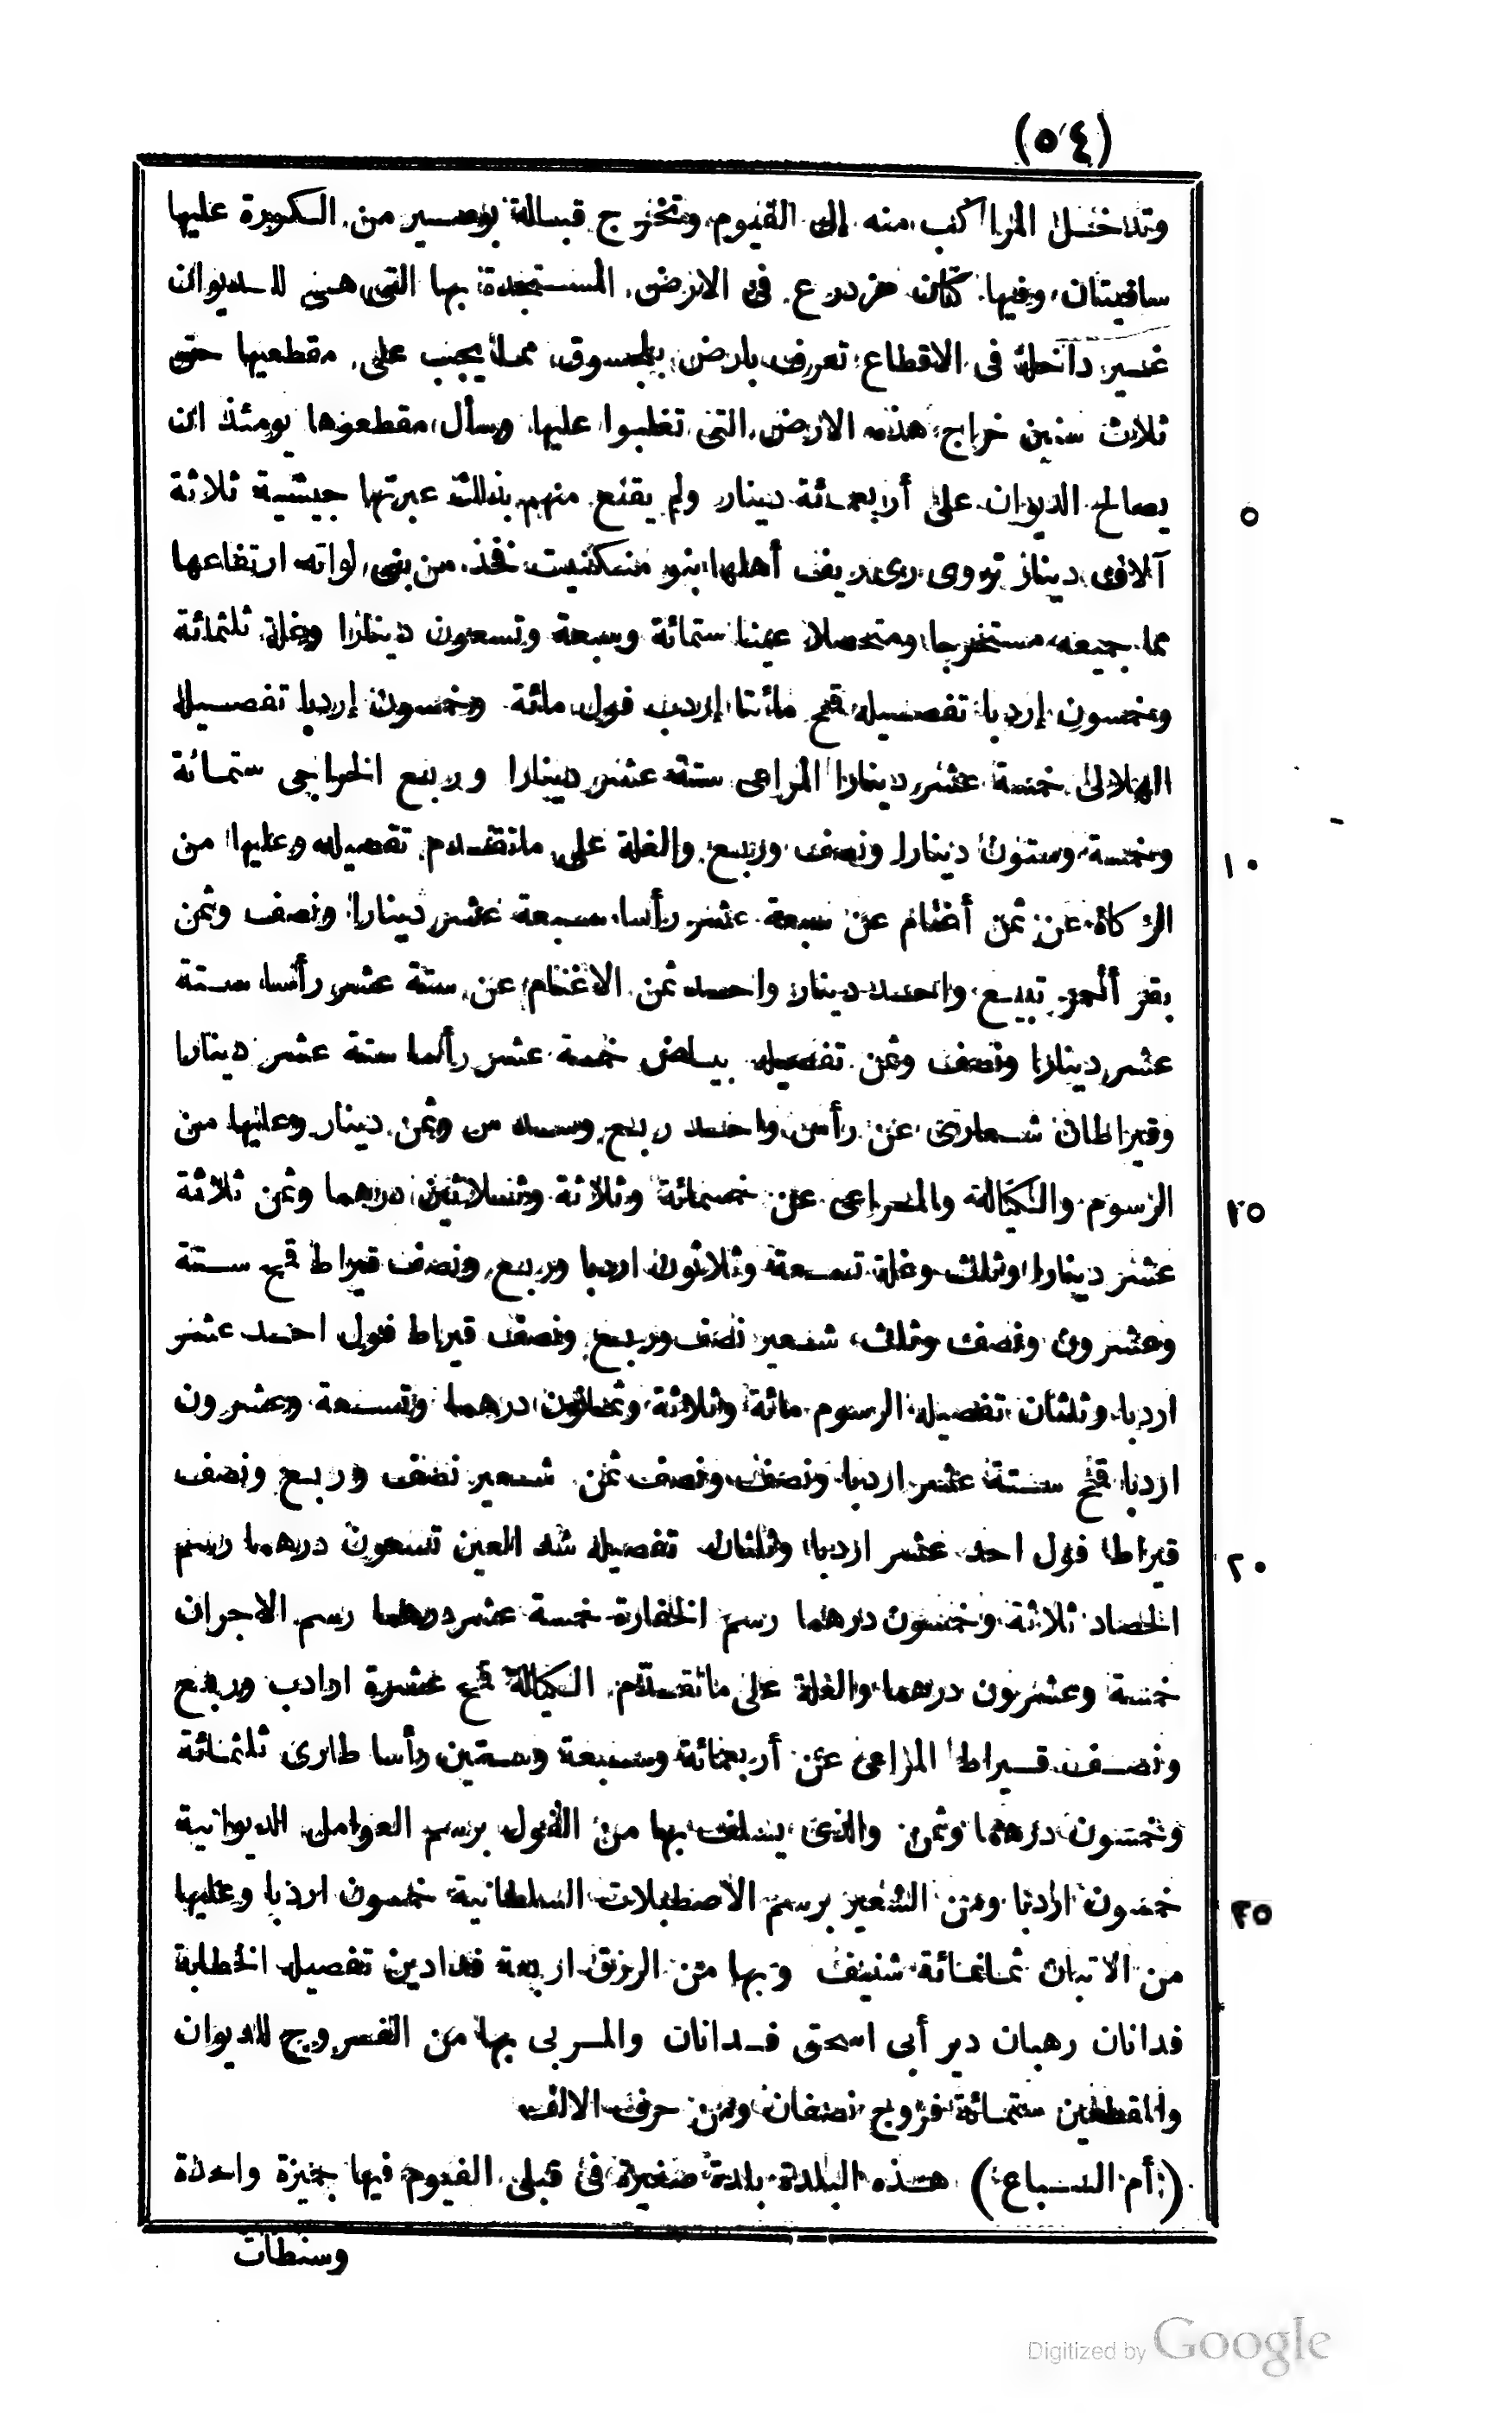 (٥٤)
وتدخل المراكب منه إلى الفيوم وتخرج قبالة بوصير من الكورة عليها
ساقيتان وفيها كتان مزدرع فى الارض المستجدة بها التى هى للديوان
غير داخلة فى الاقطاع تعرف بارض مما يجب على مقطعيها حق
ثلاث سنين خراج هذه الارض التى تغلبوا عليها وسأل مقطعوها يومئذ ان
يصالح الديوان على أربعمائة دينار ولم يقنع منهم بذلك عبرتها جيشية ثلاثة
٥
آلاف دينار تروى رى ريف أهلها بنو منكنيت فخذ من بنى لواته ارتفاعها
مما جميعه مستخرجا ومتحصلا عينا ستمائة وسبعة وتسعون دينارا وغلة ثلثمائة
وخمسون إردبا تفصيله قمح مائتا إردب فول مائة وخمسون إردبا تفصيل
الهلالى خمسة عشر دينارا المراعى ستة عشر دينارا وربع الخراجى ستمائة
وخمسة وستون دينارا ونصف وربع والغلة على ماتقدم تفصيله وعليها من
١٠
الزكاة عن ثمن أغنام عن سبعة عشر رأسا سبعة عشر دينارا ونصف وثمن
بقر أحمر تبيع واحد دينار واحد ثمن الاغنام عن ستة عشر رأسا ستة
عشر دينارا ونصف وثمن تفصيله بياض خمسة عشر رأسا ستة عشر دينارا
وقيراطان شعارى عن رأس واحد ربع وسدس وثمن دينار وعليها من
الرسوم والكيالة والمراعى عن خمسمائة وثلاثة وثلاثين درهما وثمن ثلاثة
١٥
عشر دينارا وثلث وغلة تسعة وثلاثون اردبا وربع ونصف قيراط قمح ستة
وعشرون ونصف وثلث شعير نصف وربع ونصف قيراط فول احد عشر
اردبا وثلثان تفصيله الرسوم مائة وثلاثة وثمانون درهما وتسعة وعشرون
اردبا قمح ستة عشر اردبا ونصف ونصف ثمن شعير نصف وربع ونصف
قيراط فول احد عشر اردبا وثلثان تفصيله شد العين تسعون درهما رسم
٢٠
الحصاد ثلاثة وخمسون درهما رسم الخفارة خمسة عشر درهما رسم الاجران
خمسة وعشرون درهما والغلة على ماتقدم الكيالة قمح عشرة ارادب وربع
ونصف قيراط المراعى عن أربعمائة وسبعة وستين رأسا طارى ثلثمائة
وخمسون درهما وثمن والذى يسلف بها من الفول برسم العوامل الديوانية
خمسون اردبا ومن الشعير برسم الاصطبلات السلطانية خمسون اردبا وعليها
٢٥
من الاتبان ثمانمائة شنيف وبها من الرزق اربعة فدادين تفصيل الخطابة
فدانان رهبان دير أبى اسحق فدانان والمربى بها من الفروج للديوان
والمقطعين ستمائة فروج نصفان ومن حرف الالف
(أم السباع) هذه البلدة بلدة صغيرة فى قبلى الفيوم فيها جميزة واحدة
وسنطات
Digitized by Google